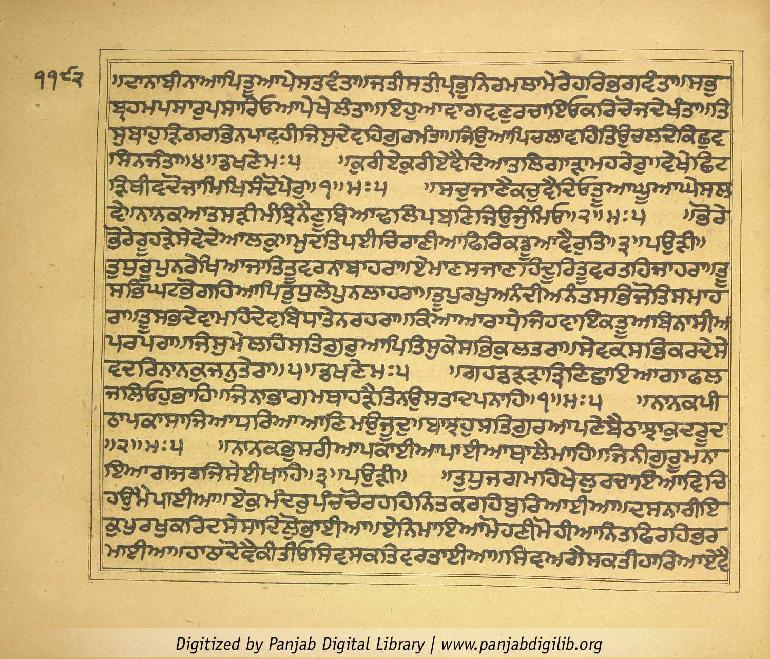 ॥ਦਾਨਾਬੀਨਾਆਪਿਤੂਆਪੇਸਤਵੰਤਾ॥ਜਤੀਸਤੀਪ੍ਰਭੁਨਿਰਮਲਾਮੇਰੇਹਰਿਭਗਵੰਤਾ॥ਸਭੁ
੧੧੯੨
ਬ੍ਰਹਮਪਸਾਰੁਪਸਾਰਿਓਆਪੇਖੇਲੰਤਾ॥ਇਹੁਆਵਾਗਵਣੁਰਚਾਇਓਕਰਿਚੋਜਦੇਖੰਤਾ॥ਤਿ
ਸੁਬਾਹੁੜਿਗਰਭਿਨਪਾਵਹੀਜਿਸੁਦੇਵਹਿਗੁਰਮੰਤਾ॥ਜਿਉਆਪਿਚਲਾਵਹਿਤਿਉਚਲਦੇਕਿਛੁਵ
ਸਿਨਜੰਤਾ॥੪॥ਡਖਣੇਮਃ੫ ॥ਕੁਰੀਏਕੁਰੀਏਵੈਦਿਆਤਲਿਗਾੜਾਮਹਰੇਰੁ॥ਵੇਖੇਛਿਟ
ੜਿਥੀਵਦੋਜਾਮਿਖਿਸੰਦੋਪੇਰੁ॥੧॥ਮਃ੫ ॥ਸਚੁਜਾਣੈਕਚੁਵੈਦਿਓਤੂਆਘੂਆਘੇਸਲ
ਵੇ॥ਨਾਨਕਆਤਸੜੀਮੰਝਿਨੈਣੂਬਿਆਢਲਿਪਬਣਿਜਿਉਜੁੰਮਿਓ॥੨॥ਮਃ੫ ॥ਭੋਰੇ
ਭੋਰੇਰੂਹੜੇਸੇਵੇਦੇਆਲਕੁ॥ਮੁਦਤਿਪਈਚਿਰਾਣੀਆਫਿਰਿਕਡੂਆਵੈਰੁਤਿ॥੩॥ਪਉੜੀ॥
ਤੁਧੁਰੂਪੁਨਰੇਖਿਆਜਾਤਿਤੂਵਰਨਾਬਾਹਰਾ॥ਏਮਾਣਸਜਾਣਹਿਦੂਰਿਤੂਵਰਤਹਿਜਾਹਰਾ॥ਤੂ
ਸਭਿਘਟਭੋਗਹਿਆਪਿਤੁਧੁਲੇਪੁਨਲਾਹਰਾ॥ਤੂਪੁਰਖੁਅਨੰਦੀਅਨੰਤਸਭਿਜੋਤਿਸਮਾਹ
ਰਾ॥ਤੂਸਭਦੇਵਾਮਹਿਦੇਵਬਿਧਾਤੇਨਰਹਰਾ॥ਕਿਆਆਰਾਧੇਜਿਹਵਾਇਕਤੂਅਬਿਨਾਸੀਅ
ਪਰਪਰਾ॥ਜਿਸੁਮੇਲਹਿਸਤਿਗੁਰੁਆਪਿਤਿਸੁਕੇਸਭਿਕੁਲਤਰਾ॥ਸੇਵਕਸਭਿਕਰਦੇਸੇ
ਵਦਰਿਨਾਨਕੁਜਨੁਤੇਰਾ॥੫॥ਡਖਣੇਮਃ੫ ॥ਗਹਡੜੜਾਤ੍ਰਿਣਿਛਾਇਆਗਾਫਲ
ਜਲਿਓਹੁਭਾਹਿ॥ਜਿਨਾਭਾਗਮਥਾਹੜੈਤਿਨਉਸਤਾਦਪਨਾਹਿ॥੧॥ਮਃ੫ ॥ਨਾਨਕਪੀ
ਠਾਪਕਾਸਾਜਿਆਧਰਿਆਆਣਿਮਉਜੂਦੁ॥ਬਾਝਹੁਸਤਿਗੁਰਆਪਣੇਬੈਠਾਝਾਕੁਦਰੂਦ
॥੨॥ਮਃ੫ ॥ਨਾਨਕਭੁਸਰੀਆਪਕਾਈਆਪਾਈਆਥਾਲੈਮਾਹਿ॥ਜਿਨੀਗੁਰੂਮਨਾ
ਇਆਰਜਿਰਜਿਸੇਈਖਾਹਿ॥੩॥ਪਉੜੀ॥ ॥ਤੁਧੁਜਗਮਹਿਖੇਲੁਰਚਾਇਆਵਿਚਿ
ਹਉਮੈਪਾਈਆ॥ਏਕੁਮੰਦਰੁਪੰਚਚੋਰਹਹਿਨਿਤਕਰਹਿਬੁਰਿਆਈਆ॥ਦਸਨਾਰੀਇ
ਕੁਪੁਰਖੁਕਰਿਦਸੇਸਾਦਿਲੋੁਭਾਈਆ॥ਏਨਿਮਾਇਆਮੋਹਣੀਮੋਹੀਆਨਿਤਫਿਰਹਿਭਰ
ਮਾਈਆ॥ਹਾਠਾਦੋਵੈਕੀਤੀਓਸਿਵਸਕਤਿਵਰਤਾਈਆ॥ਸਿਵਅਗੈਸਕਤੀਹਾਰਿਆਏਵੈ
Digitized by Panjab Digital Library | www.panjabdigilib.org